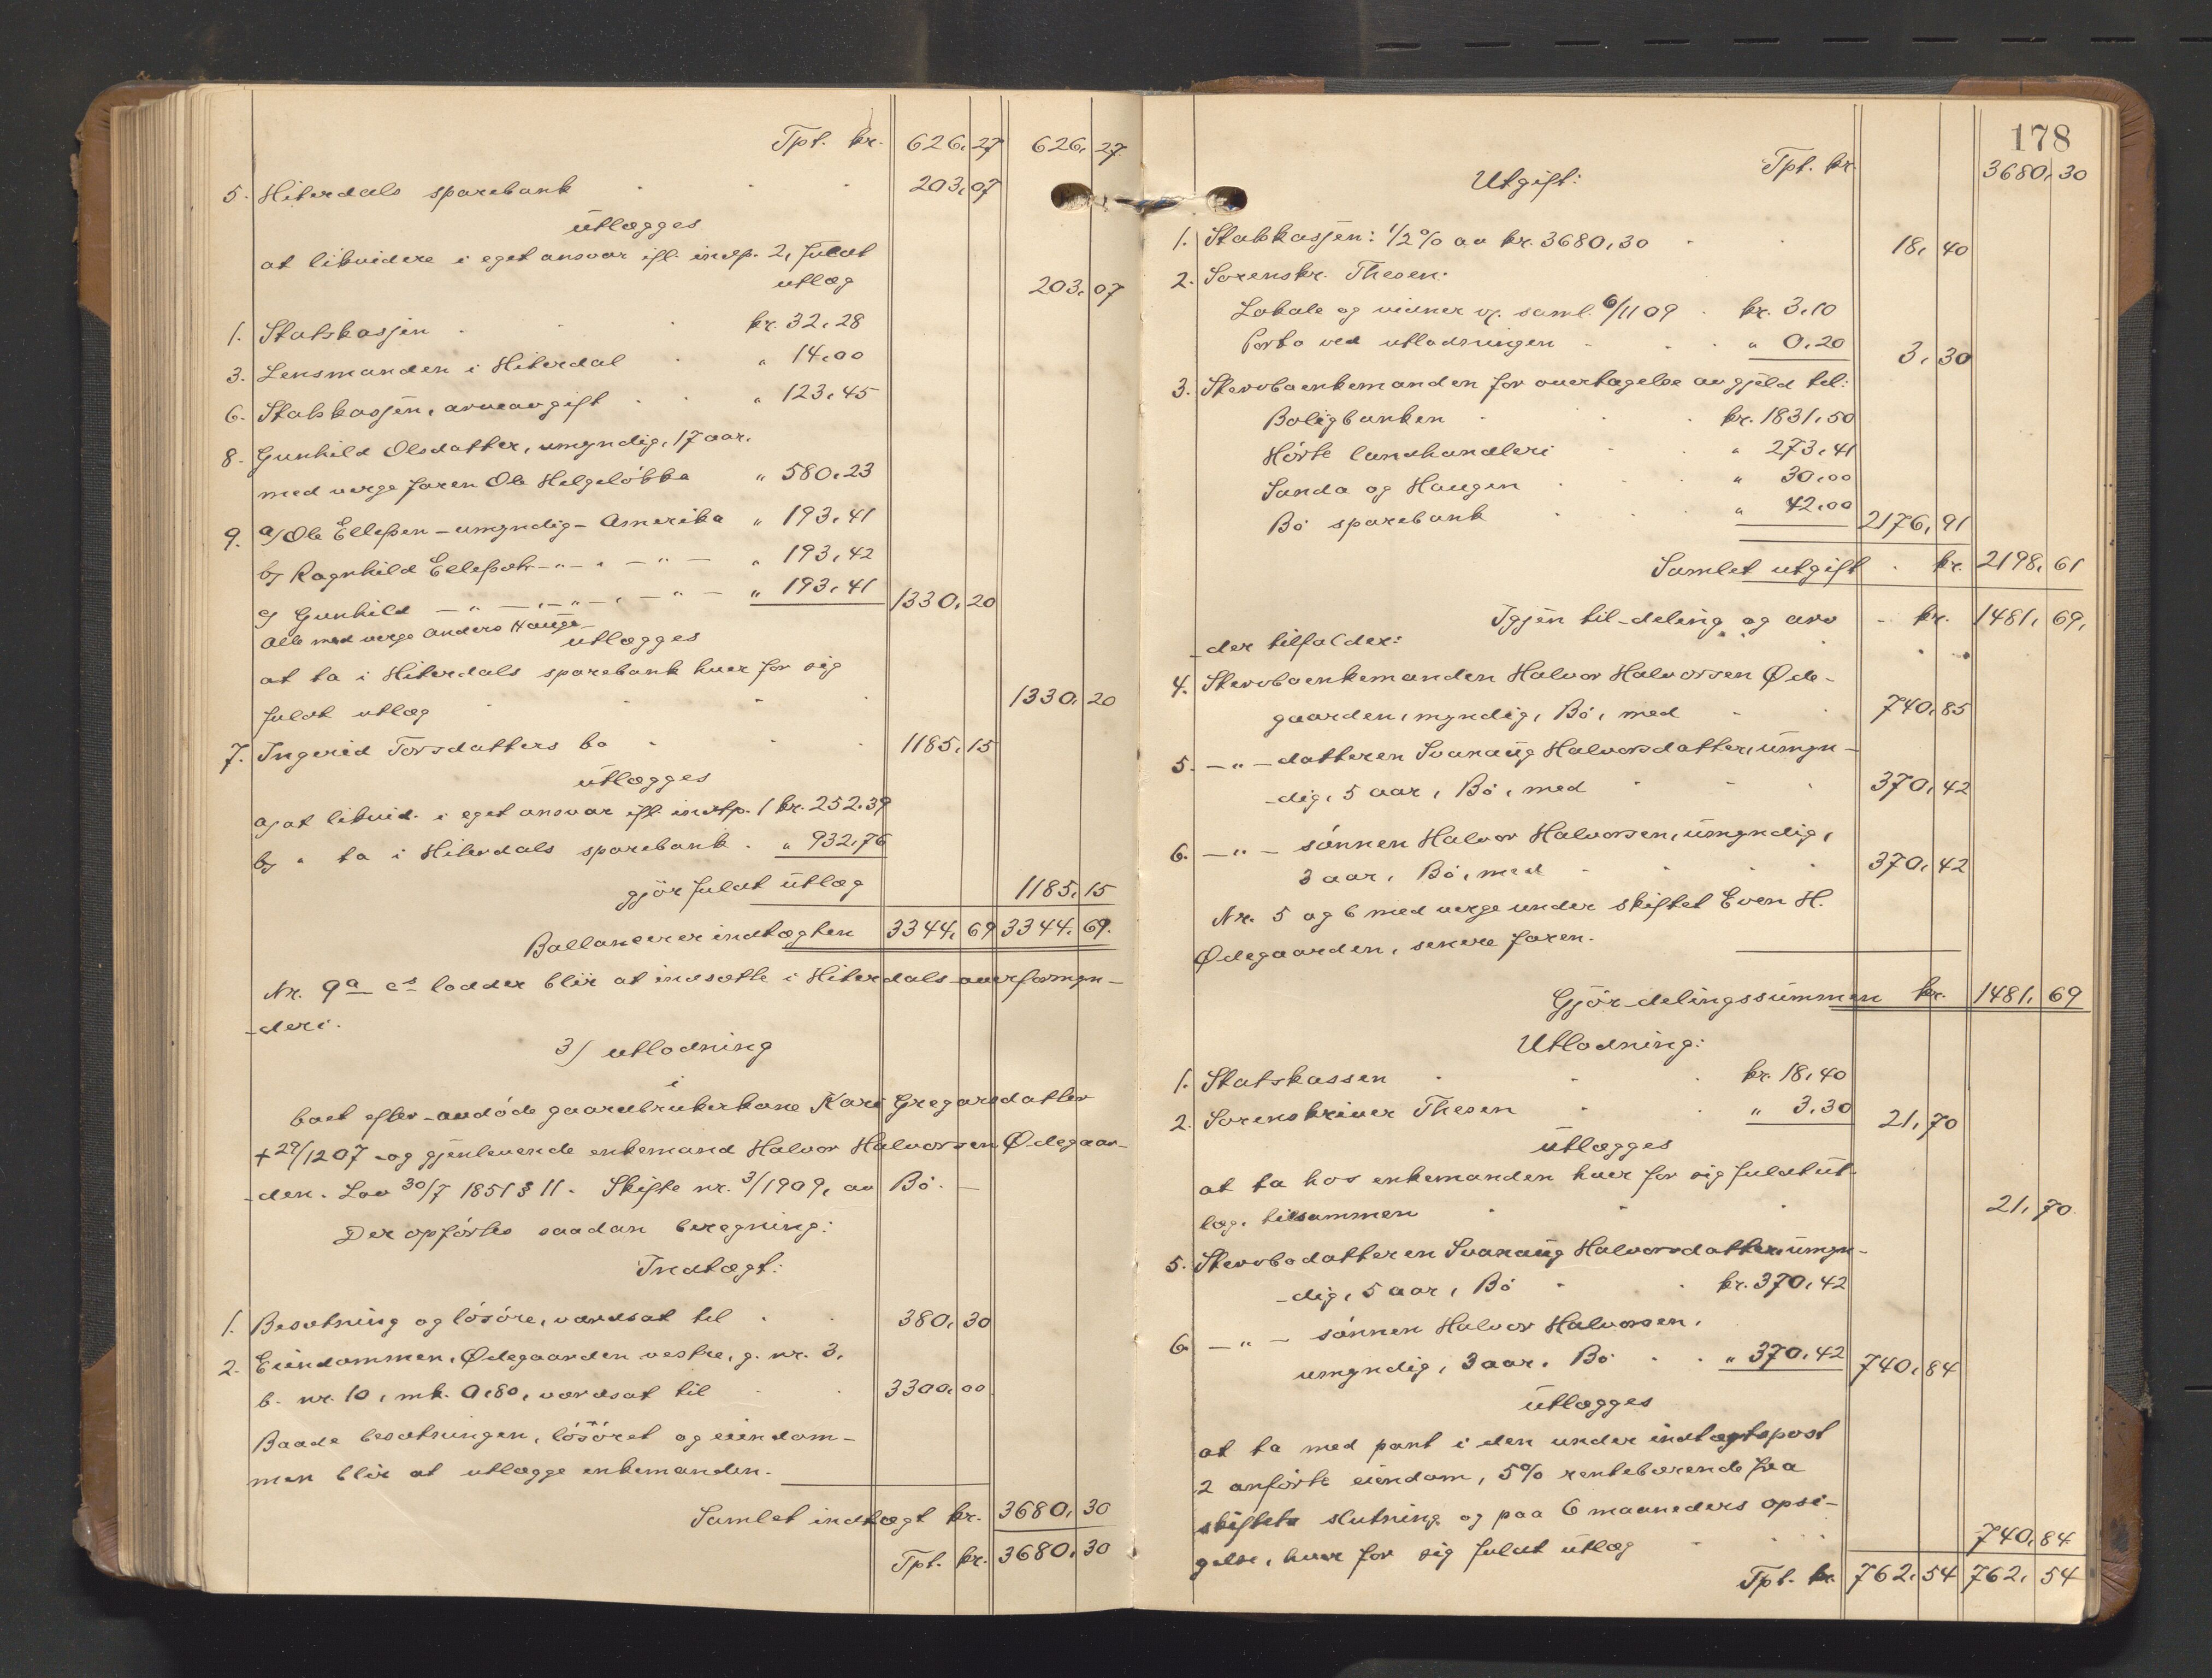 Tpt. kr. 626,27 626,27
5. Hiterdals sparebank 203,07
utlægges
at likvidere i eget ansvar ifl. indtp. 2, fuldt
utlæg 203,07
1. Statskassen kr. 32,28
3. Lensmanden i Hiterdal " 14,00
6. Statskassen, arveavgift " 123,45
8. Gunhild Olsdatter, umyndig, 17 aar,
med verge faren Ole Helgeløkka " 580,23
9. a) Ole Ellefsen - umyndig - Amerika " 193,41
b) Ragnhild Ellefsdtr. - " - , - " - " 193,42
c) Gunhild - " - , - " - , - " - " 193,41 1330,20
alle med verge Anders Hauge
utlægges
at ta i Hiterdals sparebank hver for sig
fuldt utlæg 1330,20
7. Ingerid Torsdatters bo 1185,15
utlægges
a) at likvid. i eget ansvar ifl. indtp. 1 kr. 252,39
b) " ta i Hiterdals sparebank. " 932,76
gjør fuldt utlæg 1185,15
Ballancerer indtægten 3344,69 3344,69.
Nr. 9a - c's lodder blir at indsætte i Hiterdals overformyn-
deri.
3) utlodning
i
boet efter avdøde gaardbrukerkone Kari Gregarsdatter
+ 29/12 07 og gjenlevende enkemand Halvor Halvorsen Ødegaar-
den. Lov 30/7 1851 § 11. Skifte nr. 3/1909, av Bø. -
Der opførtes saadan beregning:
Indtægt:
1. Besætning og løsøre, værdsat til 380,30
2. Eiendommen, Ødegaarden vestre, g. nr. 3,
b. nr. 10, mk. 0,80, værdsat til 3300,00
Baade besætningen, løsøret og eiendom-
men blir at utlægge enkemanden.
Samlet indtægt kr. 3680,30
Tpt. kr. 3680,30
178
Tpt. kr. 3680,30
Utgift:
1. Statskassen: 1/2 % av kr. 3680,30 18,40
2. Sorenskr. Thesen:
Lokale og vidner v. saml. 6/11 09 kr. 3,10
Porto ved utlodningen " 0,20 3,30
3. Stervboenkemanden for overtagelse av gjæld til:
Boligbanken kr. 1831,50
Hørte landhandleri " 273,41
Sanda og Haugen " 30,00
Bø sparebank " 42,00 2176,91
Samlet utgift kr. 2198,61
Igjen til deling og arv kr. 1481,69,
der tilfalder:
4. Stervboenkemanden Halvor Halvorsen Øde-
gaarden, myndig, Bø, med 740,85
5. - " - datteren Svanaug Halvorsdatter, umyn-
dig, 5 aar, Bø, med 370,42
6. - " - sønnen Halvor Halvorsen, umyndig,
3 aar, Bø, med 370,42
Nr. 5 og 6 med verge under skiftet Even H.
Ødegaarden, senere faren.
Gjør delingssummen kr. 1481,69
Utlodning:
1. Statskassen kr. 18,40
2. Sorenskriver Thesen " 3,30 21,70
utlægges
at ta hos enkemanden hver for sig fuldt ut-
læg, tilsammen 21,70.
5. Stervbodatteren Svanaug Halvorsdatter, umyn-
dig, 5 aar, Bø kr. 370,42
6. - " - sønnen Halvor Halvorsen,
umyndig, 3 aar, Bø " 370,42 740,84
utlægges
at ta med pant i den under indtægtspost
2 anførte eiendom, 5% rentebærende fra
skiftets slutning og paa 6 maaneders opsi-
gelse, hver for sig fuldt utlæg 740,84
Tpt. kr. 762,54 762,54